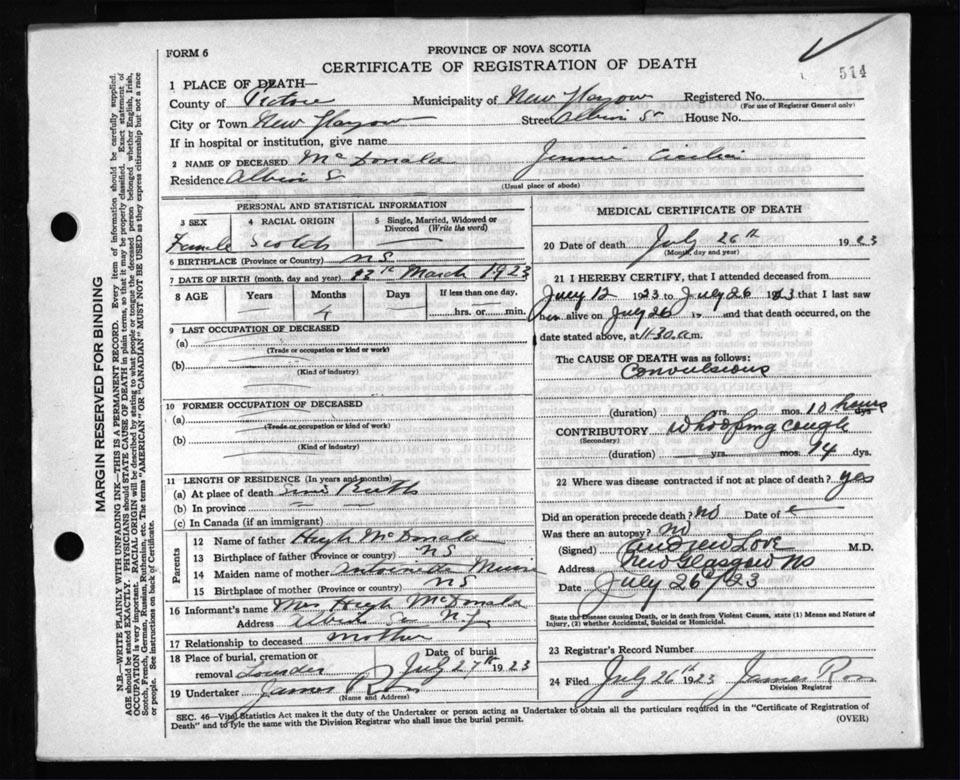 FORM 6
PROVINCE OF NOVA SCOTIA
CERTIFICATE OF REGISTRATION OF DEATH
514
1 PLACE OF DEATH—
County of Pictou Municipality of New Glasgow Registered No.
(For use of Registrar General only)
City or Town New Glasgow Street Albion St House No.
If in hospital or institution, give name
2 NAME OF DECEASED McDonald Jennie Cicilia
Residence Albion S
(Usual place of abode)
PERSONAL AND STATISTICAL INFORMATION
3 SEX 4 RACIAL ORIGIN 5 Single, Married, Widowed or Divorced (Write the word)
Female Scotch —
6 BIRTHPLACE (Province or Country) NS
7 DATE OF BIRTH (month, day and year) March 1923
8 AGE Years Months Days If less than one day,
4 hrs. or min.
9 LAST OCCUPATION OF DECEASED
(a)
(Trade or occupation or kind or work)
(b)
(Kind of industry)
10 FORMER OCCUPATION OF DECEASED
(a)
(Trade or occupation or kind of work)
(b)
(Kind of industry)
11 LENGTH OF RESIDENCE (In years and months)
(a) At place of death Since Birth
(b) In province
(c) In Canada (if an immigrant)
Parents
12 Name of father Hugh McDonald
13 Birthplace of father (Province or country) NS
14 Maiden name of mother
15 Birthplace of mother (Province or country) NS
16 Informant's name Mrs Hugh McDonald
Address Albion
17 Relationship to deceased mother
18 Place of burial, cremation or removal Lourdes Date of burial July 27th 1923
19 Undertaker James Ross
(Name and Address)
MEDICAL CERTIFICATE OF DEATH
20 Date of death July 26th 1923
(Month, day and year)
21 I HEREBY CERTIFY, that I attended deceased from
July 12 1923 to July 26 1923 that I last saw
her alive on July 26 19 and that death occurred, on the
date stated above, at 11-30 a.m.
The CAUSE OF DEATH was as follows:
Convulsions
(duration) yrs. mos. 10 hours dys.
CONTRIBUTORY Whooping cough
(Secondary)
(duration) yrs. mos. 14 dys.
22 Where was disease contracted if not at place of death? yes
Did an operation precede death? No Date of
Was there an autopsy? No
(Signed) Andrew Love M.D.
Address New Glasgow NS
Date July 26/23
State the Disease causing Death, or in death from Violent Causes, state (1) Means and Nature of
Injury, (2) whether Accidental, Suicidal or Homicidal.
23 Registrar's Record Number
24 Filed July 26th 1923 James Ross
Division Registrar
SEC. 46—Vital Statistics Act makes it the duty of the Undertaker or person acting as Undertaker to obtain all the particulars required in the "Certificate of Registration of
Death" and to fyle the same with the Division Registrar who shall issue the burial permit. (OVER)
MARGIN RESERVED FOR BINDING
N.B.—WRITE PLAINLY WITH UNFADING INK—THIS IS A PERMANENT RECORD. Every item of information should be carefully supplied.
AGE should be stated EXACTLY. PHYSICIANS should STATE CAUSE OF DEATH in plain terms, so that it may be properly classified. Exact statement of
OCCUPATION is very important. RACIAL ORIGIN will be described by stating to what people or tongue the deceased person belonged whether English, Irish,
Scotch, French, German, Russian, Ruthenian, etc. The terms "AMERICAN" OR "CANADIAN" MUST NOT BE USED as they express citizenship but not a race
or people. See instructions on back of Certificate.